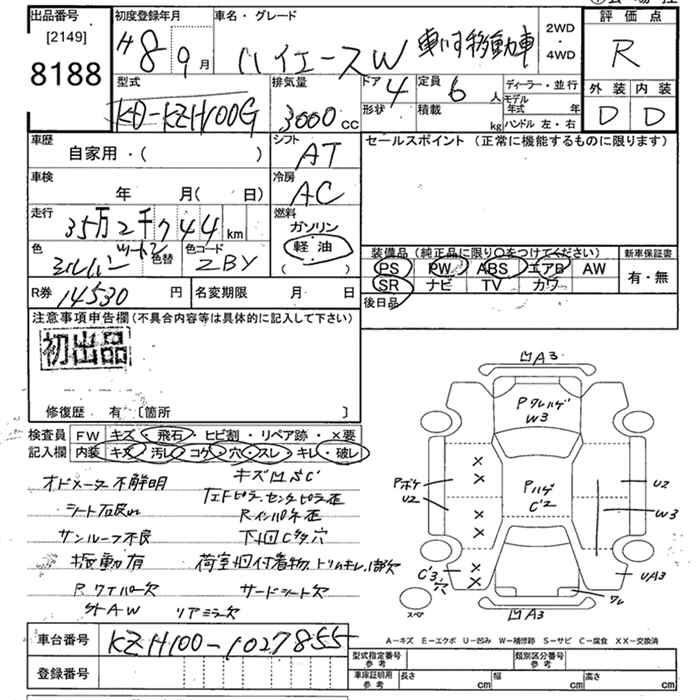 出品番号
[2149]
8188
初度登録年月
H8 9月
車名・グレード
ハイエースW 車いす移動車
2WD
・
4WD
評価点
R
外装 内装
D D
型式
KD-KZH100G
排気量
3000cc
ドア 4
形状
定員 6人
積載 kg
ディーラー・並行
モデル年式 年
ハンドル 左・右
車歴
自家用・( )
シフト
AT
セールスポイント(正常に機能するものに限ります)
車検
年 月( 日)
冷房
AC
走行
35万2千744km
燃料
ガソリン
軽油
( )
色
シルバー ツートン
色替
色コード
ZBY
装備品(純正品に限り○をつけてください)
新車保証書
PS PW ABS エアB AW
SR ナビ TV カワ
有・無
後日品
R券 14530円
名変期限 月 日
注意事項申告欄(不具合内容等は具体的に記入して下さい)
初出品
修復歴 有〔箇所 〕
検査員
記入欄
FW キズ・飛石・ヒビ割・リペア跡・×要
内装 キズ・汚レ・コゲ・穴・スレ・キレ・破レ
オドメーター不解明
キズ凹SC
シート石灰
左Fピラ、センタピラ歪
Rインパネ歪
サンルーフ不良
下回C多穴
振動有
荷室回付着物、トリムキレ、1部欠
Rワイパー欠
サードシート欠
外AW
リアミラー欠
凹A3
Pワレハゲ
W3
Pボケ
U2
Pハゲ
C2
U2
W3
C3穴
UA3
ワレ
凹A3
スペア
A-キズ E-エクボ U-凹み W-補修跡 S-サビ C-腐食 XX-交換済
車台番号
KZH100-1027855
登録番号
型式指定番号
参考
類別区分番号
参考
車庫証明用
参考
長さ cm
幅 cm
高さ cm